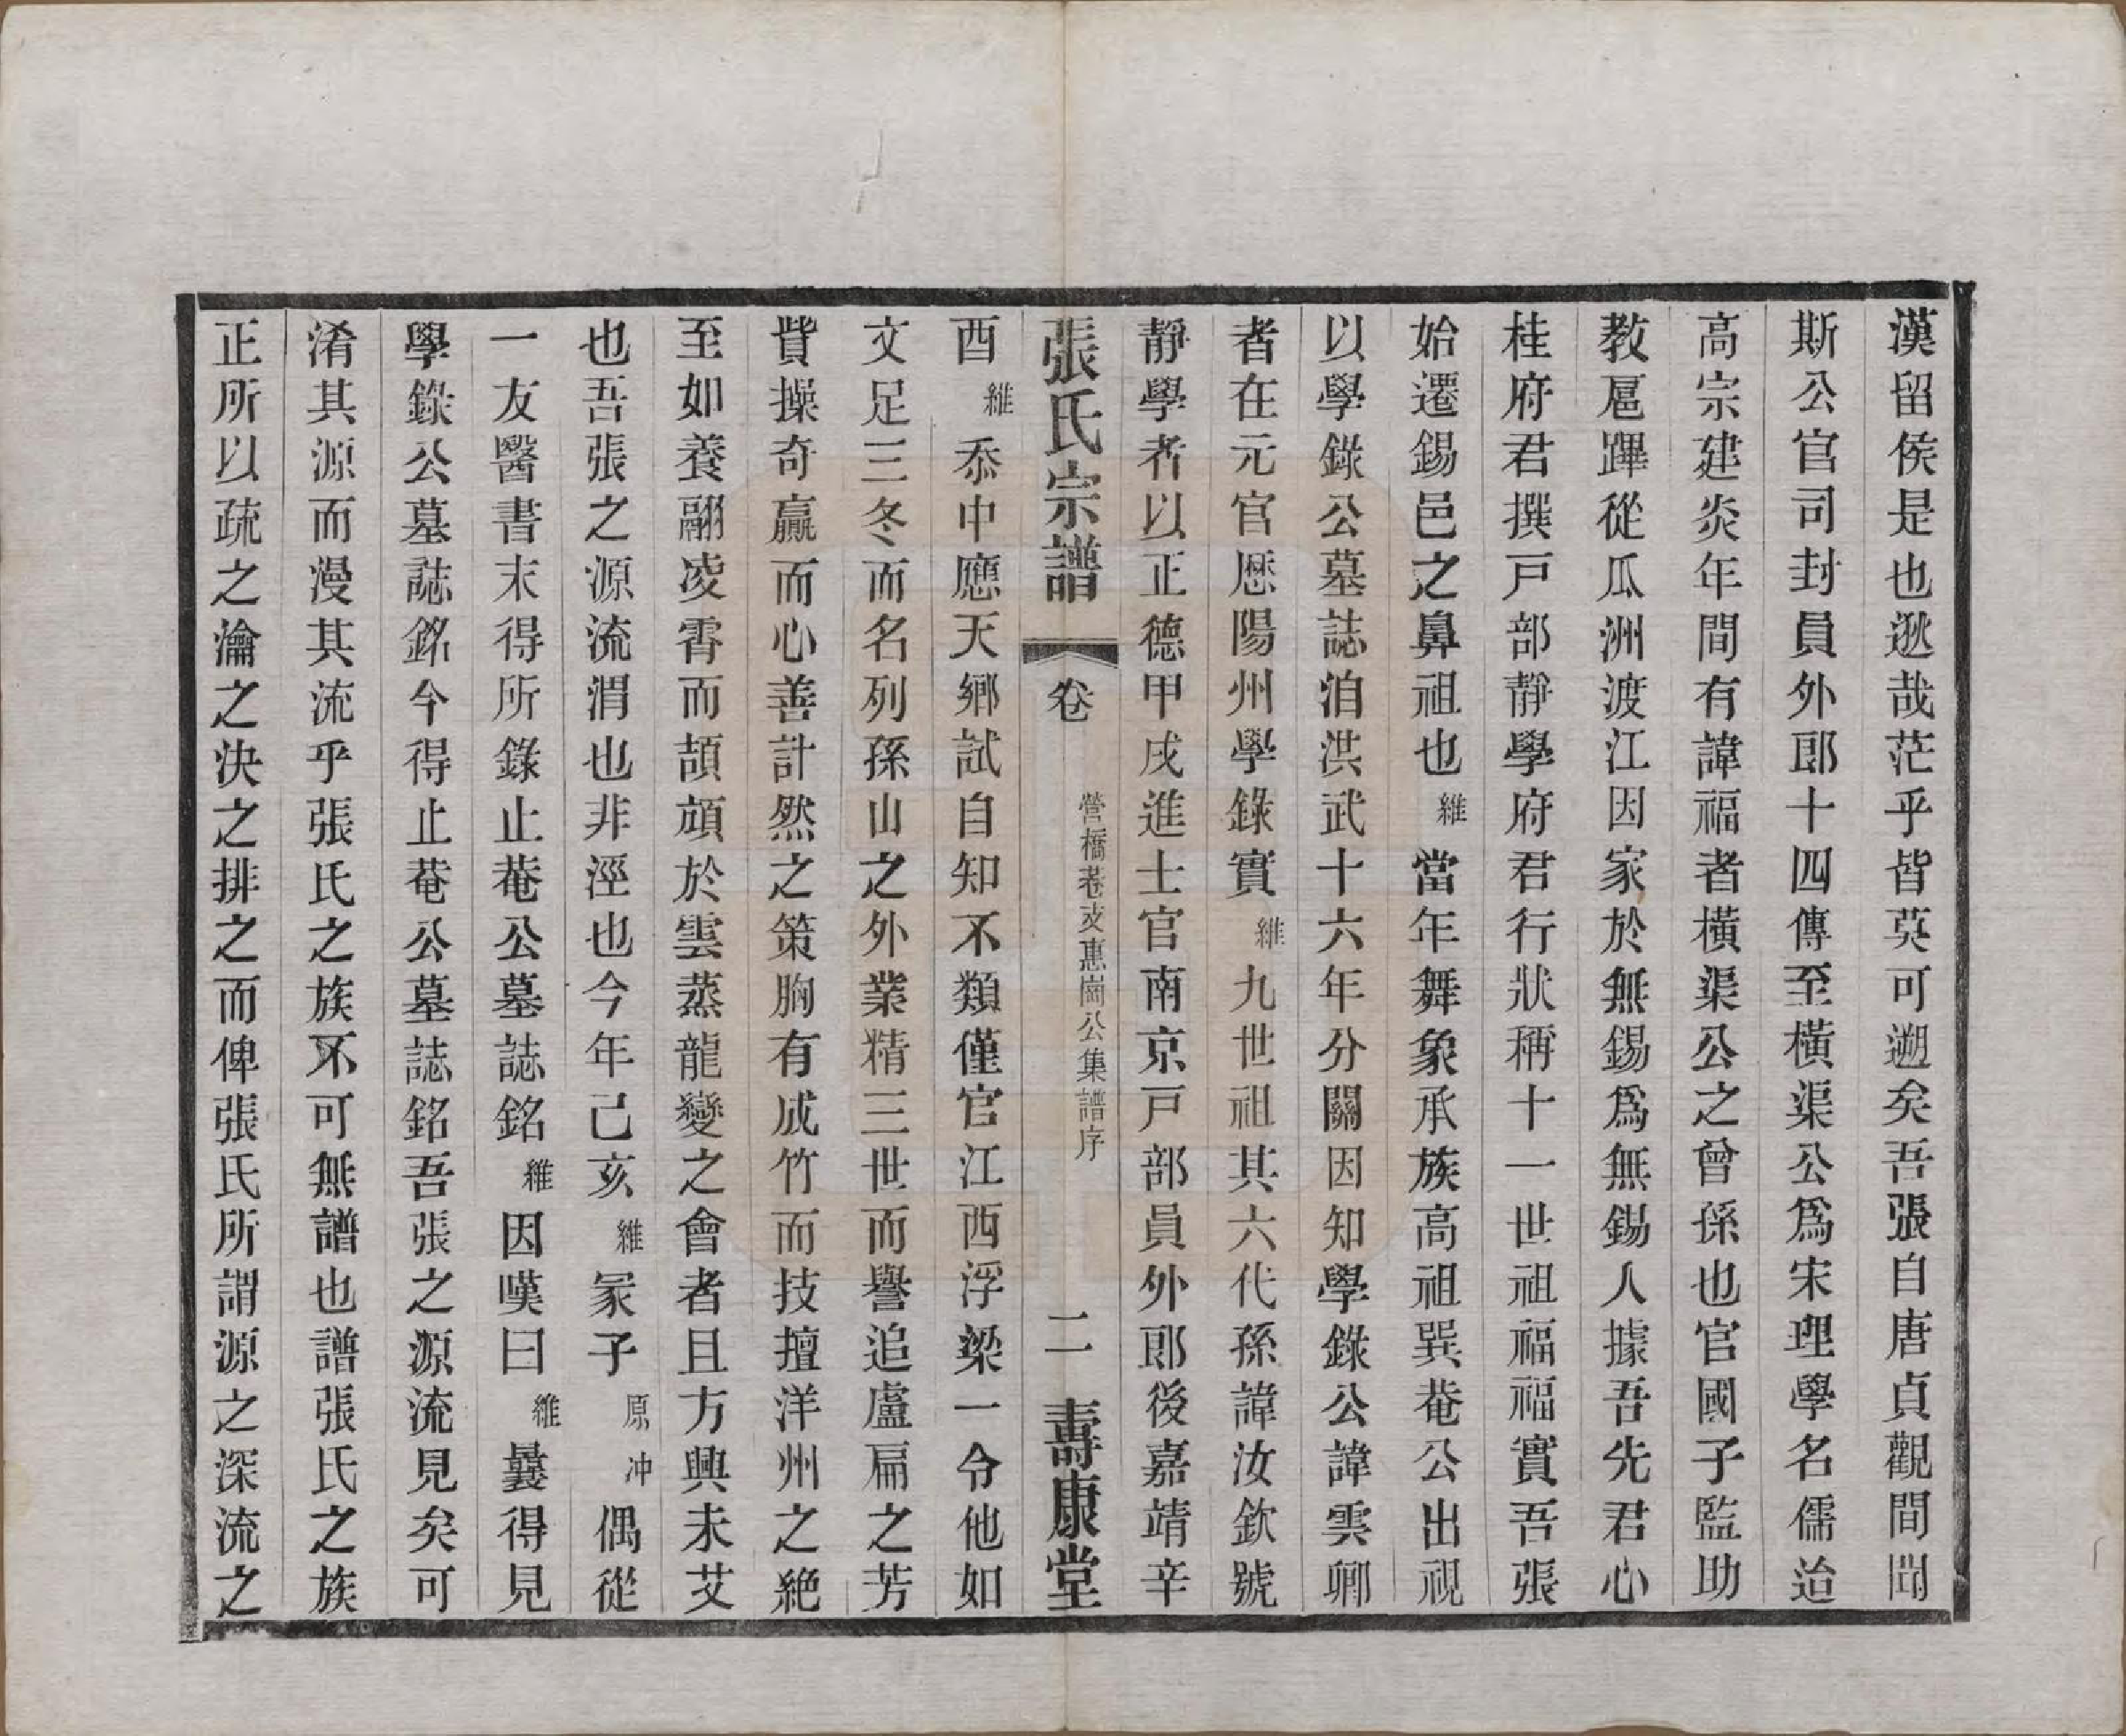 漢留侯是也逖哉茫乎皆莫可遡矣吾張自唐貞觀間閎
斯公官司封員外郎十四傳至橫渠公爲宋理學名儒迨
高宗建炎年間有諱福者橫渠公之曾孫也官國子監助
教扈蹕從瓜洲渡江因家於無錫爲無錫人據吾先君心
桂府君撰戸部靜學府君行狀稱十一世祖福福實吾張
始遷錫邑之鼻祖也維當年舞象承族高祖巽菴公出視
以學錄公墓誌洎洪武十六年分關因知學錄公諱雲卿
者在元官厯陽州學錄實維九世祖其六代孫諱汝欽號
靜學者以正德甲戌進士官南京戸部員外郎後嘉靖辛
張氏宗譜 卷 營橋巷支惠崗公集譜序 二 壽康堂
酉維忝中應天鄉試自知不類僅官江西浮梁一令他如
文足三冬而名列孫山之外業精三世而譽追盧扁之芳
貲操奇贏而心善計然之策胸有成竹而技擅洋州之絶
至如養翮凌霄而頡頏於雲蒸龍變之會者且方興未艾
也吾張之源流渭也非涇也今年己亥維冡子原冲偶從
一友醫書末得所錄止菴公墓誌銘維因嘆曰維曩得見
學錄公墓誌銘今得止菴公墓誌銘吾張之源流見矣可
淆其源而漫其流乎張氏之族不可無譜也譜張氏之族
正所以疏之瀹之決之排之而俾張氏所謂源之深流之